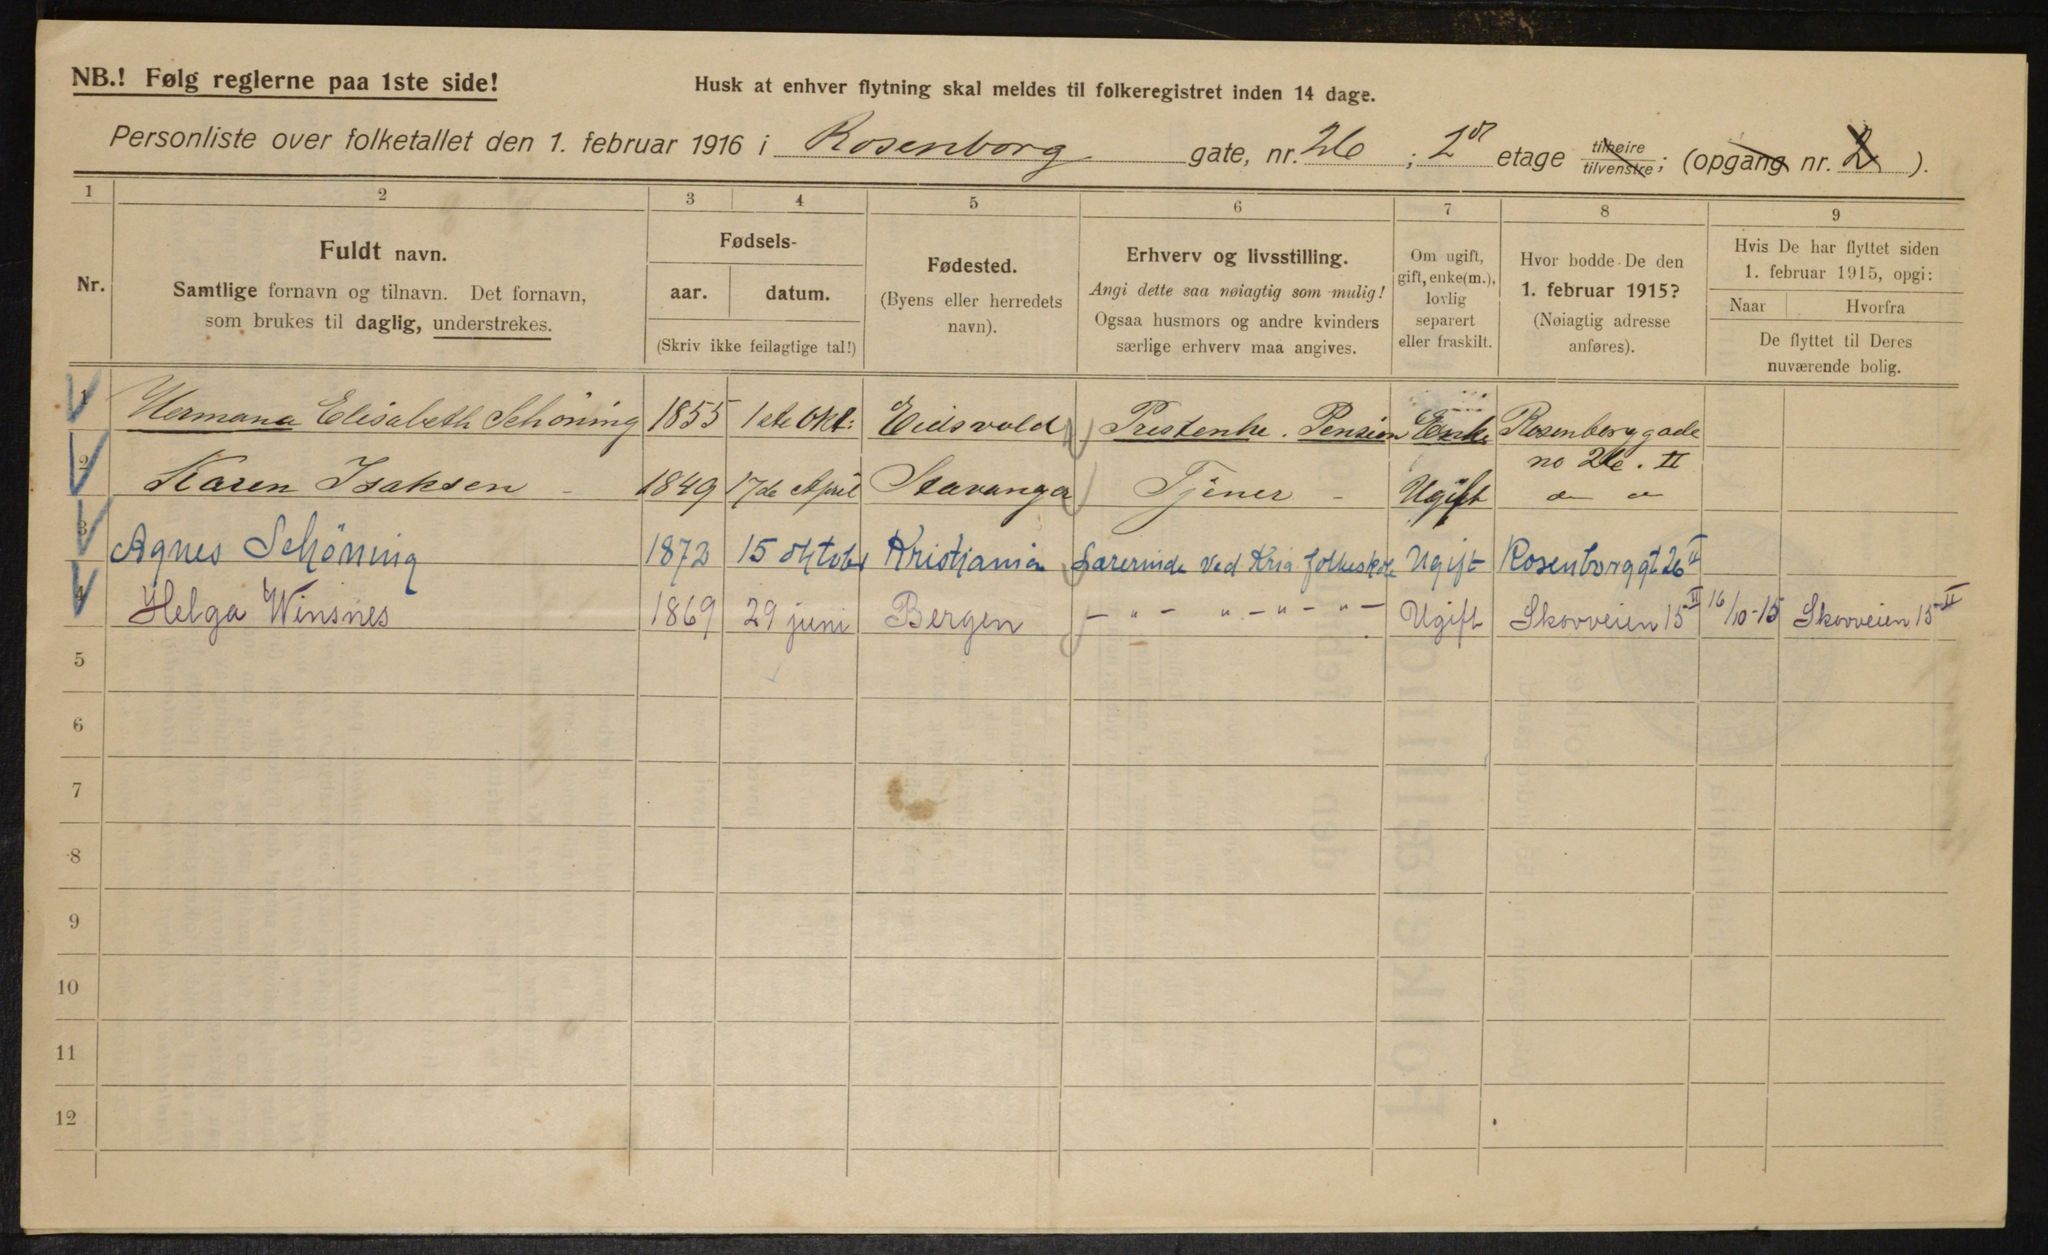 NB.! Følg reglerne paa 1ste side!
Husk at enhver flytning skal meldes til folkeregistret inden 14 dage.
Personliste over folketallet den 1. februar 1916 i Rosenborg gate, nr. 26 ; etage tilhøire tilvenstre; (opgang nr. 2 ).
1 2 3 4 5 6 7 8 9
Nr.
Fuldt navn.
Samtlige fornavn og tilnavn. Det fornavn,
som brukes til daglig, understrekes.
Fødsels-
aar. datum.
(Skriv ikke feilagtige tal!)
Fødested.
(Byens eller herredets
navn).
Erhverv og livsstilling.
Angi dette saa nøiagtig som mulig!
Ogsaa husmors og andre kvinders
særlige erhverv maa angives.
Om ugift,
gift, enke(m.),
lovlig
separert
eller fraskilt.
Hvor bodde De den
1. februar 1915?
(Nøiagtig adresse
anføres).
Hvis De har flyttet siden
1. februar 1915, opgi:
Naar Hvorfra
De flyttet til Deres
nuværende bolig.
1 Hermana Elisabeth Schöning 1855 1ste Okt: Eidsvold Prestenke. Pension Enke Rosenborggade
no 26. II
2 Karen Isaksen - 1849 17de April Stavanger Tjener - Ugift
3 Agnes Schöning 1872 15 oktober Kristiania Lærerinde ved Kria folkeskole Ugift Rosenborggt 26 II
4 Helga Winsnes 1869 29 juni Bergen - " - " - " - " - Ugift Skovveien 15 II 16/10-15 Skovveien 15 II
5
6
7
8
9
10
11
12